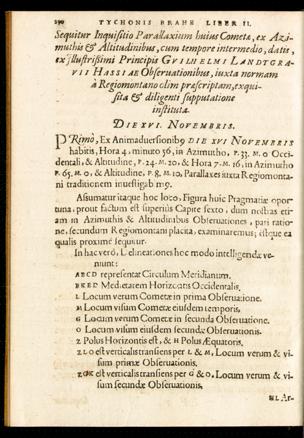 190 TYCHONIS BRAHE LIBER II.
Sequitur Inquisitio Parallaxium huius Cometæ, ex Azi-
muthis & Altitudinibus, cum tempore intermedio, datis,
ex Illustrissimi Principis GUILHELMI LANDTGRA-
VII HASSIAE Observationibus, iuxta normam
à Regiomontano olim præscriptam, exqui-
sita & diligenti supputatione
instituta.
DIE XVI. NOVEMBRIS.
PRimò, Ex Animaduersionib9 DIE XVI NOVEMBRIS
habitis, Hora 4. minuto 56, in Azimutho, P. 33. M. 0 Occi-
dentali, & Altitudine, P. 24. M. 20, & Hora 7. M. 16, in Azimutho
P. 65. M. 0, & Altitudine, P. 8. M. 10, Parallaxes iuxta Regiomonta-
ni traditionem inuestigab m9.
Assumatur itaque hoc loco, Figura huic Pragmatiæ opor-
tuna, prout factum est superiùs Capite sexto, dum nostras eti-
am in Azimuthis & Altitudinibus Obseruationes, pari ratio-
ne, secundum Regiomontani placita, examinaremus; éstque ea
qualis proximè sequitur.
In hac verò, Delineationes hoc modo intelligendæ ve-
niunt:
ABCD representat Circulum Meridianum.
BKED Medietatem Horizontis Occidentalis.
L Locum verum Cometæ in prima Obseruatione.
M Locum visum Cometæ eiusdem temporis.
G Locum verum Cometæ in secunda Obseruatione.
O Locum visum eiusdem secundæ Obseruationis.
Z Polus Horizontis est, & H Polus Æquatoris.
est verticalis transiens per L & M, Locum verum & vi-
sum primæ Obseruationis.
est verticalis transiens per G & O, Locum verum & vi-
sum secundæ Obseruationis.
HL Ar-